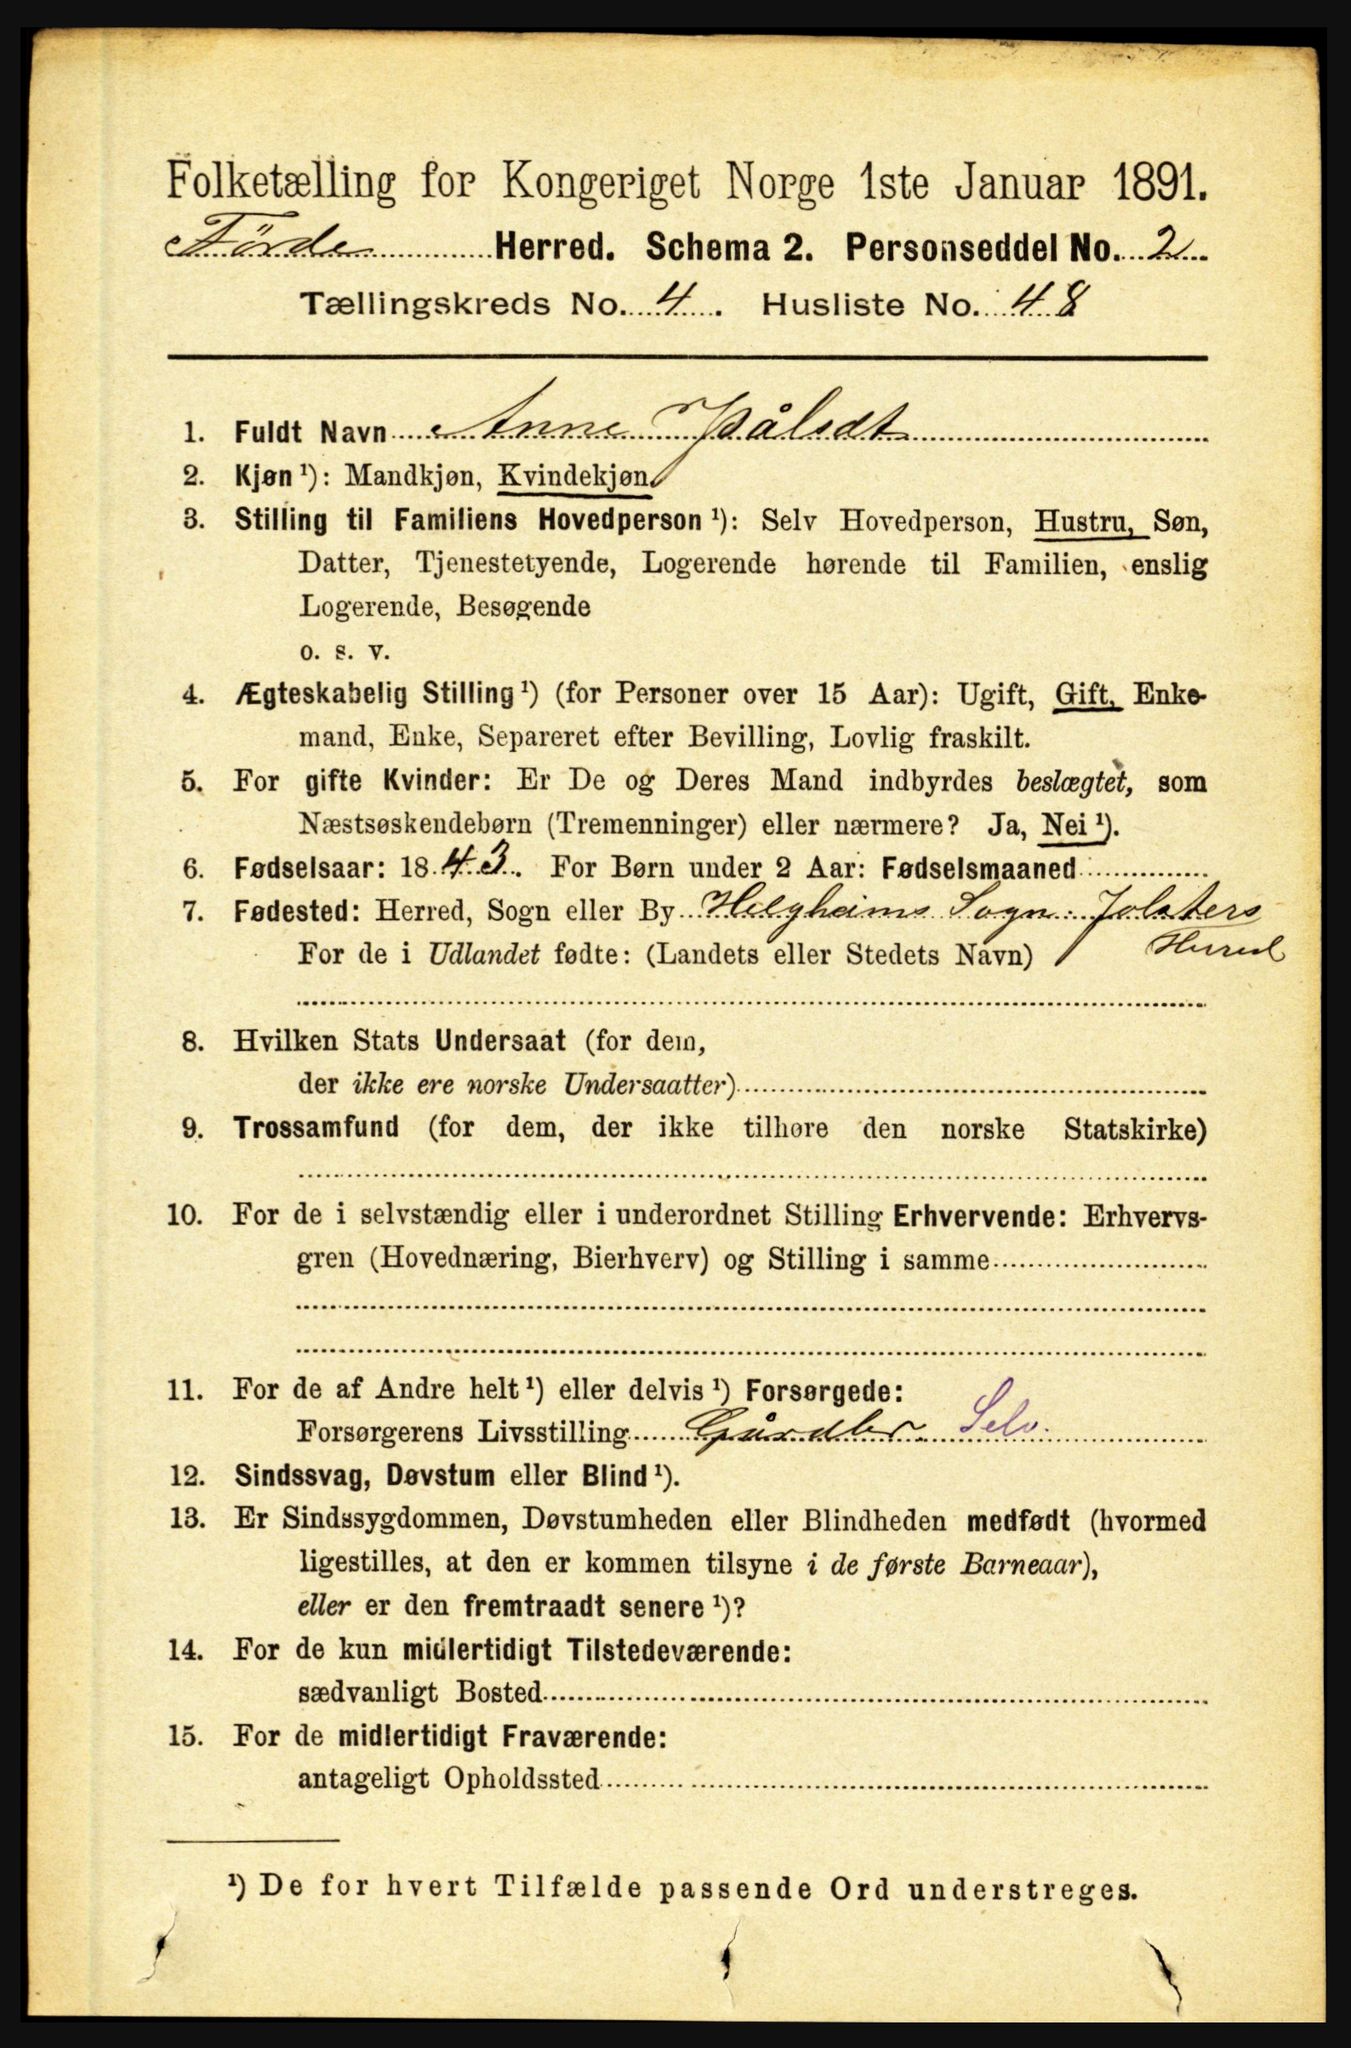 Folketælling for Kongeriget Norge 1ste Januar 1891.
Förde Herred. Schema 2. Personseddel No. 2
Tællingskreds No. 4. Husliste No. 48
1. Fuldt Navn Anne Pålsdt
2. Kjøn ¹): Mandkjøn, Kvindekjøn.
3. Stilling til Familiens Hovedperson ¹): Selv Hovedperson, Hustru, Søn,
Datter, Tjenestetyende, Logerende hørende til Familien, enslig
Logerende, Besøgende
o. s. v.
4. Ægteskabelig Stilling ¹) (for Personer over 15 Aar): Ugift, Gift, Enke-
mand, Enke, Separeret efter Bevilling, Lovlig fraskilt.
5. For gifte Kvinder: Er De og Deres Mand indbyrdes beslægtet, som
Næstsøskendebørn (Tremenninger) eller nærmere? Ja, Nei ¹).
6. Fødselsaar: 1843. For Børn under 2 Aar: Fødselsmaaned
7. Fødested: Herred, Sogn eller By Helgheims Sogn Jolsters
For de i Udlandet fødte: (Landets eller Stedets Navn) Herred
8. Hvilken Stats Undersaat (for dem,
der ikke ere norske Undersaatter)
9. Trossamfund (for dem, der ikke tilhøre den norske Statskirke)
10. For de i selvstændig eller i underordnet Stilling Erhvervende: Erhvervs-
gren (Hovednæring, Bierhverv) og Stilling i samme
11. For de af Andre helt ¹) eller delvis ¹) Forsørgede:
Forsørgerens Livsstilling Gårdbr Selv.
12. Sindssvag, Døvstum eller Blind ¹).
13. Er Sindssygdommen, Døvstumheden eller Blindheden medfødt (hvormed
ligestilles, at den er kommen tilsyne i de første Barneaar),
eller er den fremtraadt senere ¹)?
14. For de kun midlertidigt Tilstedeværende:
sædvanligt Bosted
15. For de midlertidigt Fraværende:
antageligt Opholdssted
¹) De for hvert Tilfælde passende Ord understreges.